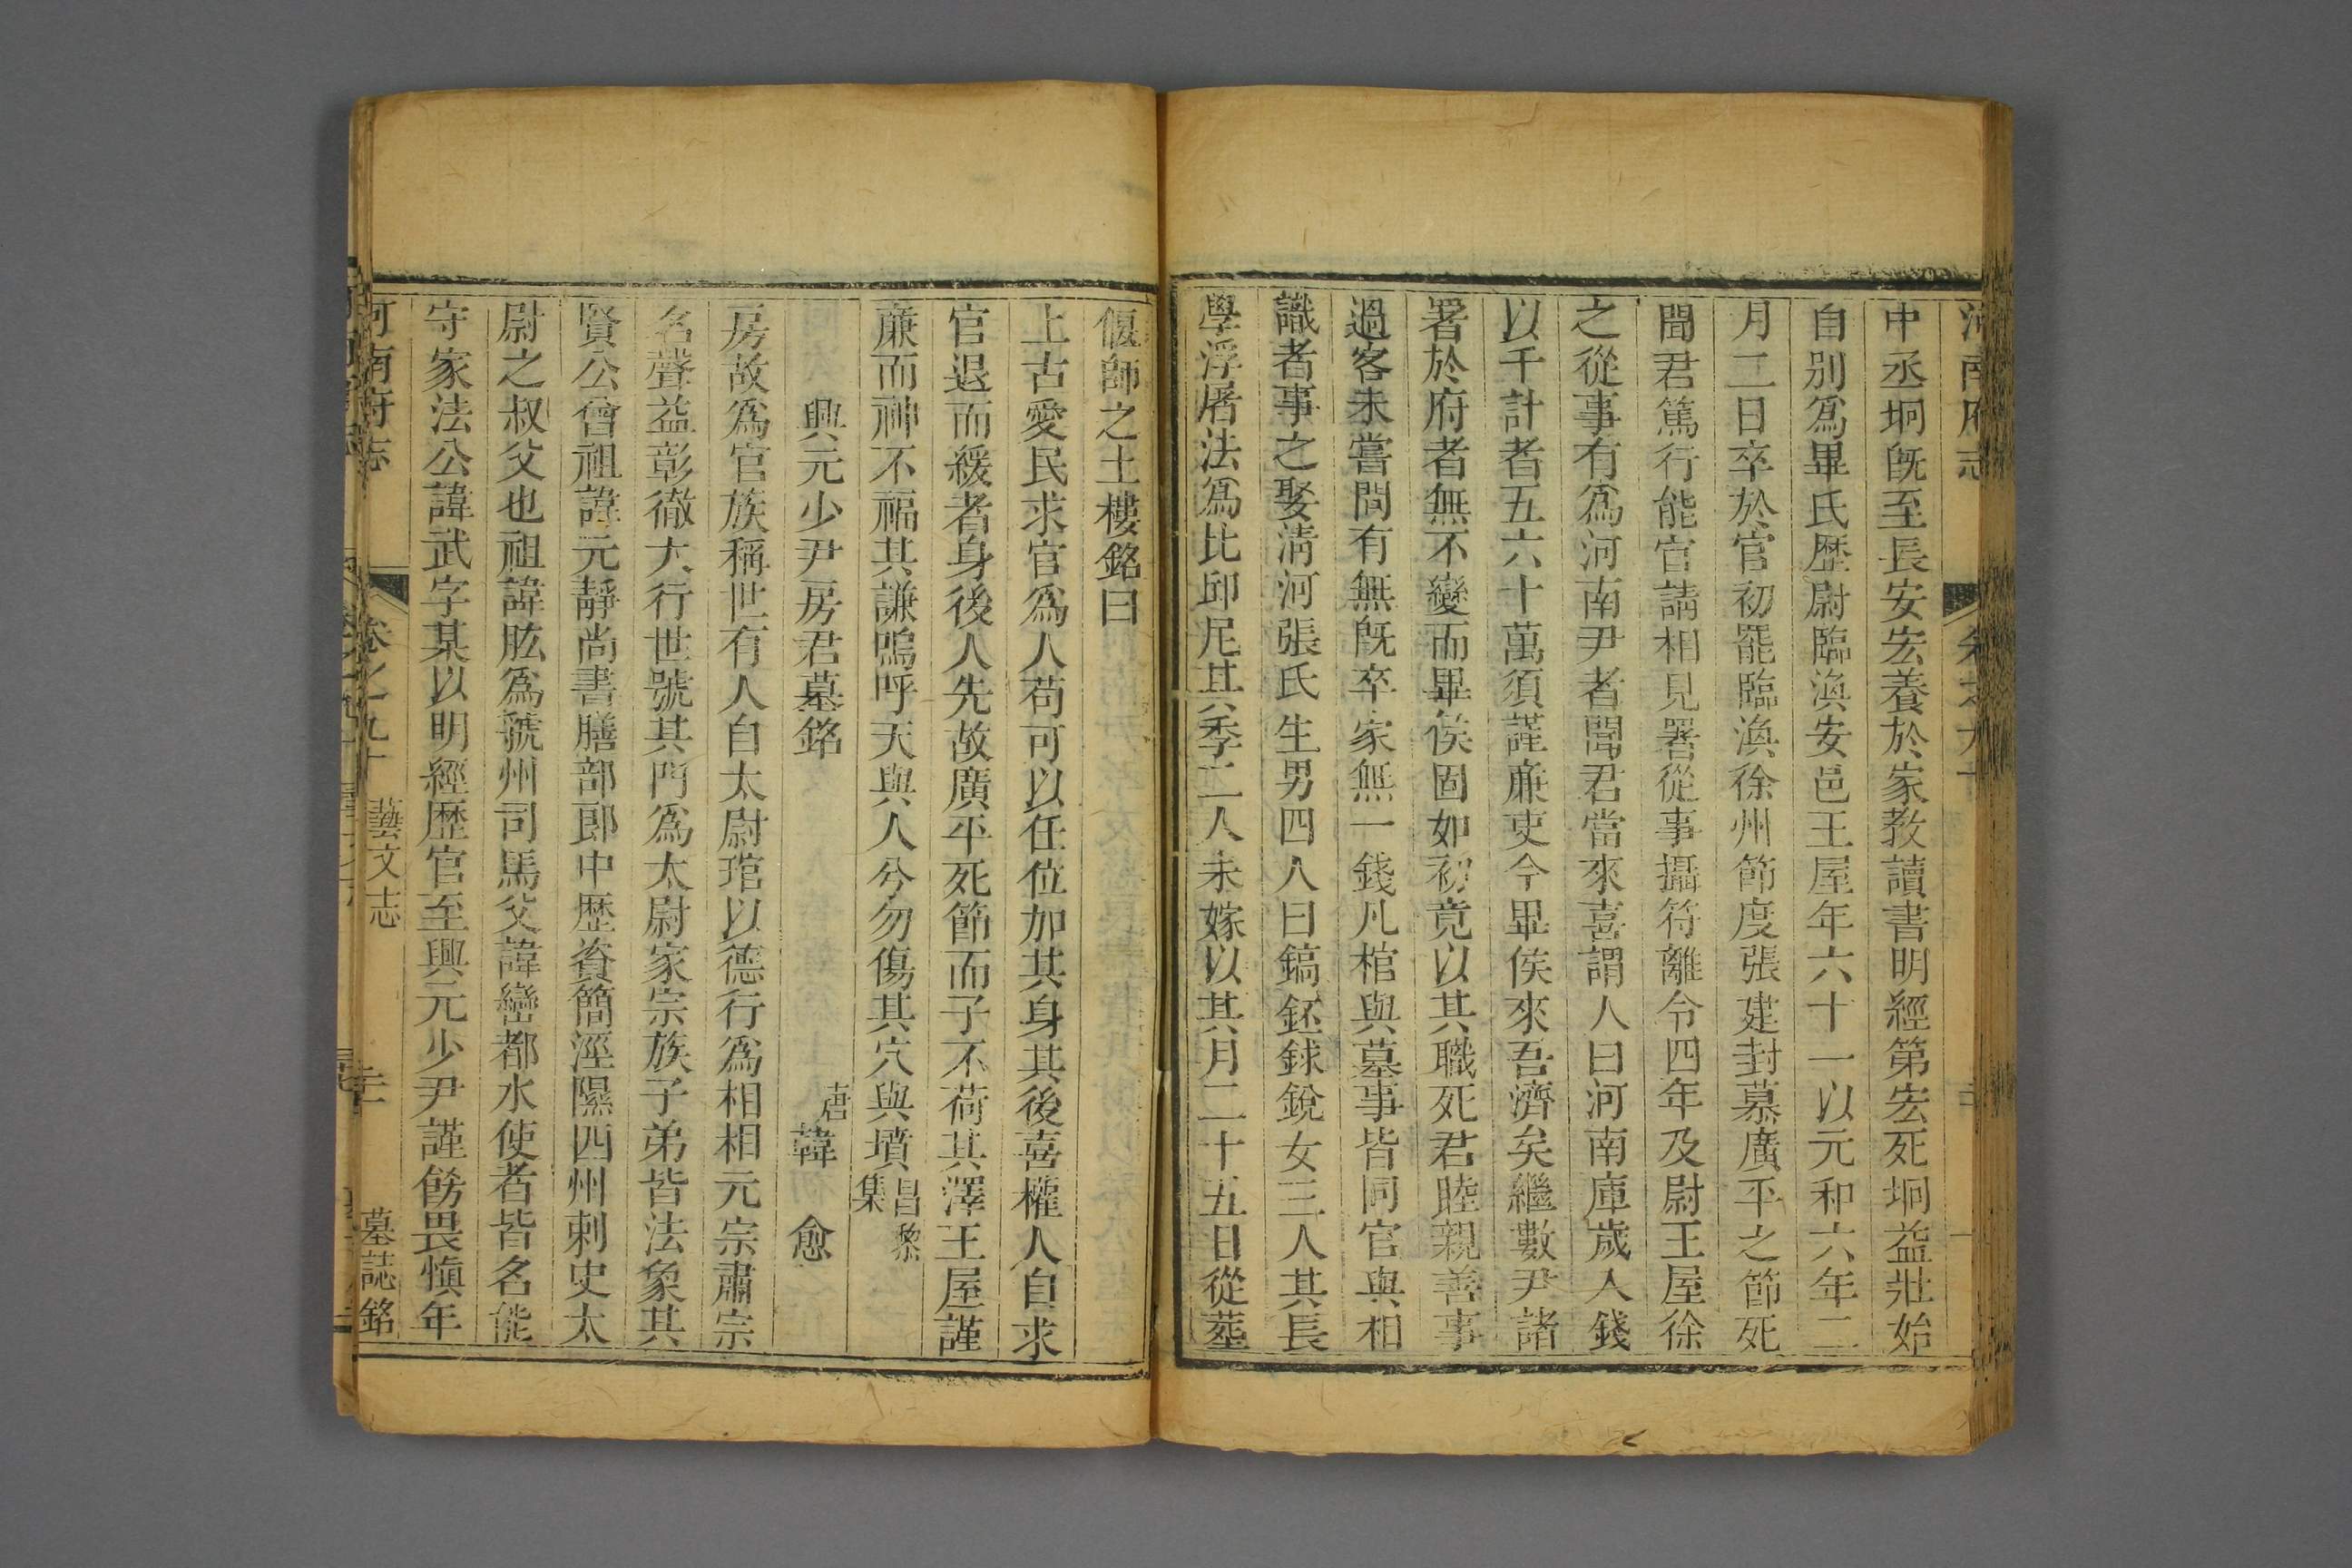 河南府志 卷之九十
中丞坰旣至長安宏養於家敎讀書明經第宏死坰益壯始
自別爲畢氏歷尉臨渙安邑王屋年六十一以元和六年二
月二日卒於官初罷臨渙徐州節度張建封慕廣平之節死
聞君篤行能官請相見署從事攝符離令四年及尉王屋徐
之從事有爲河南尹者聞君當來喜謂人曰河南庫歲入錢
以千計者五六十萬須謹廉吏今畢侯來吾濟矣繼數尹諸
署於府者無不變而畢侯固如初竟以其職死君睦親善事
過客未嘗問有無旣卒家無一錢凡棺與墓事皆同官與相
識者事之娶淸河張氏生男四人曰鎬鉟銶銳女三人其長
學浮屠法爲比邱尼其季二人未嫁以其月二十五日從葬
偃師之土樓銘曰
上古愛民求官爲人苟可以任位加其身其後喜權人自求
官退而緩者身後人先故廣平死節而子不荷其澤王屋謹
廉而神不福其謙嗚呼天與人兮勿傷其穴與墳昌黎集
興元少尹房君墓銘 唐韓愈
房故爲官族稱世有人自太尉琯以德行爲相相元宗肅宗
名聲益彰徹大行世號其門爲太尉家宗族子弟皆法象其
賢公曾祖諱元靜尚書膳部郎中歷資簡涇隰四州刺史太
尉之叔父也祖諱肱爲虢州司馬父諱巒都水使者皆名能
守家法公諱武字某以明經歷官至興元少尹謹飭畏愼年
河南府志 卷之九十 藝文志 墓誌銘